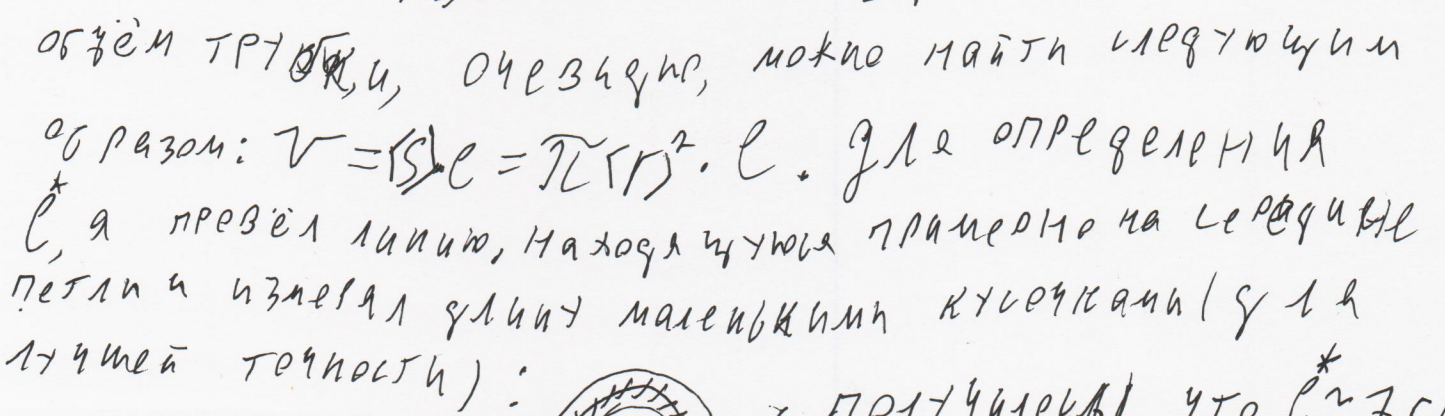 объём трубки, очевидно, можно найти следующим
образом: V = ⟨S⟩·l = π⟨r⟩²·l. Для определения
l*, я провёл линию, находящуюся примерно на середине
петли и измерял длину маленькими кусочками (для
лучшей точности):
получилось, что l* ~